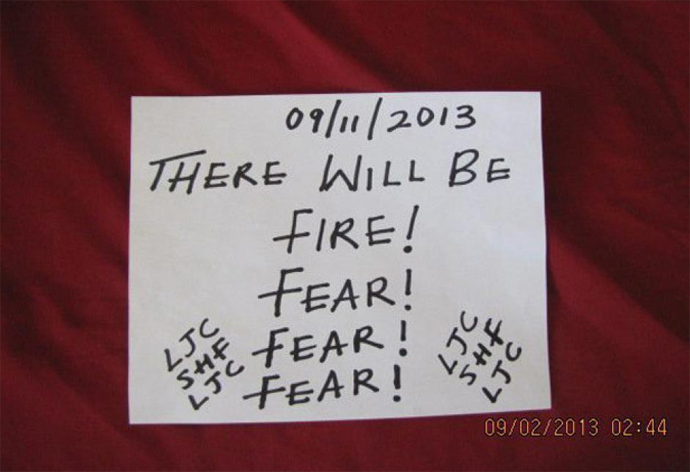 09/11/2013
THERE WILL BE
FIRE!
FEAR!
FEAR!
FEAR!
LJC
SHF
LJC
LJC
SHF
LJC
09/02/2013 02:44